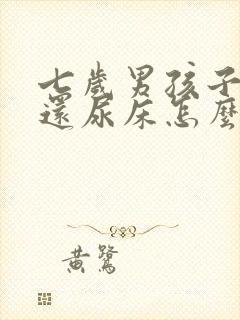 七歲男孩子
還尿床怎麼
黃鷺